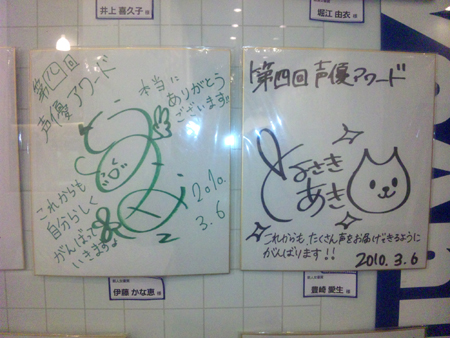 井上 喜久子 様
堀江 由衣 様
第四回
声優アワード
本当に
ありがとう
ございます!!
これからも
自分らしく
がんばって
いきます
2010.
3.6
「第四回 声優アワード
とよさき
あき
これからも たくさん声をお届けできるように
がんばります!!
2010.3.6
新人女優賞
伊藤 かな恵 様
新人女優賞
豊崎 愛生 様